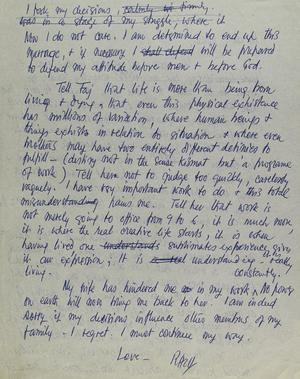 I took my decisions, family.
was in a stage of my struggle, where it
Now I do not care. I am determined to end up this
marriage, & if necessary I shall defend will be prepared
to defend my attitude before men & before God.
Tell Taj that life is more than being born
living & dying, that even this physical existence
has millions of variation, where human beings &
things exists in relation to situation & where even
brothers may have two entirely different destinies to
fulfill – (destiny not in the sense format but a programe
of work). Tell him not to judge too quickly, carelessly
vaguely. I have very important work to do & this total
misunderstanding pains me. Tell her that work is
not merely going to office from 9 to 6, it is much more,
it is where the real creative life starts, it is when
having lived one understands sublimates experience, give
it an expression; It is understanding & really
living. constantly.
My wife has hindered me in my work. No power
on earth will now bring me back to her. I am indeed
sorry if my decisions influence other members of my
family. I regret. I must continue my way.
Love –